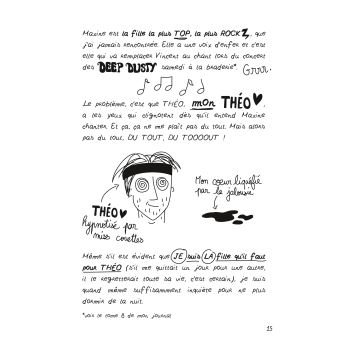 Maxine est la fille la plus TOP, la plus ROCK, que
j'ai jamais rencontrée. Elle a une voix d'enfer et c'est
elle qui va remplacer Vincent au chant lors du concert
des DEEP DUSTY samedi à la braderie*. Grrr.
Le problème, c'est que THÉO, mon THÉO♥,
a les yeux qui clignotent dès qu'il entend Maxine
chanter. Et ça, ça ne me plaît pas du tout. Mais alors
pas du tout, DU TOUT, DU TOOOOUT !
Mon cœur liquéfié
par la jalousie
THÉO♥
hypnotisé par
miss couettes
Même s'il est évident que JE suis LA fille qu'il faut
pour THÉO (s'il me quittait un jour pour une autre,
il le regretterait toute sa vie, c'est certain), je suis
quand même suffisamment inquiète pour ne plus
dormir de la nuit.
*voir le tome 8 de mon journal
15